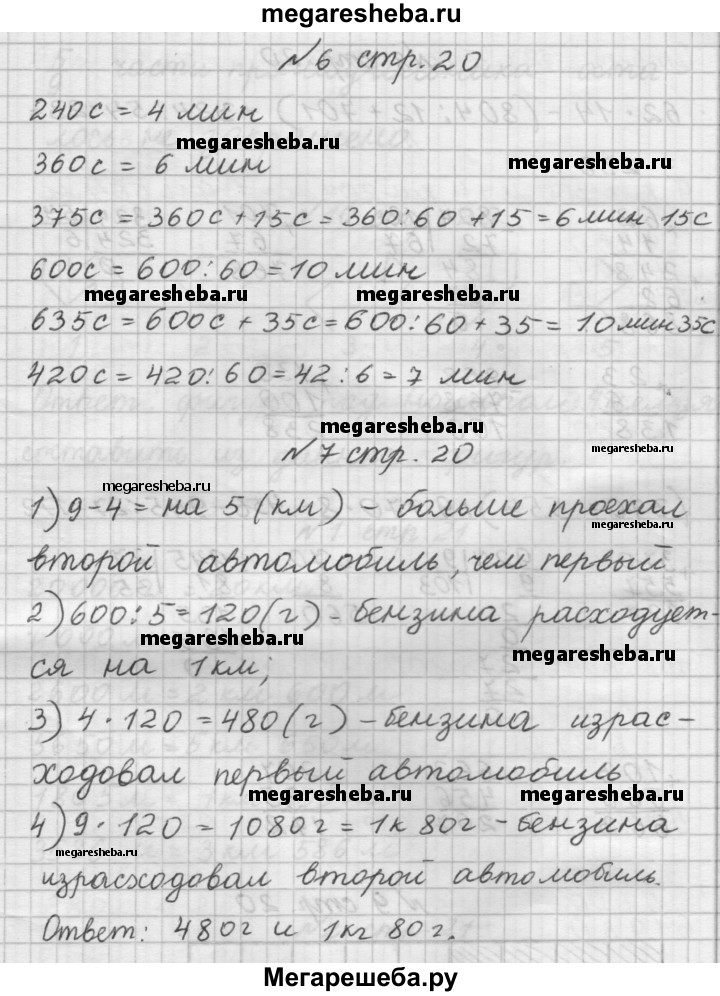 megaresheba.ru
№6 стр. 20
240с = 4 мин
megaresheba.ru
360с = 6 мин
megaresheba.ru
375с = 360с + 15с = 360:60 + 15 = 6 мин 15с
600с = 600:60 = 10 мин
megaresheba.ru megaresheba.ru
635с = 600с + 35с = 600:60 + 35 = 10 мин 35с
420с = 420:60 = 42:6 = 7 мин
megaresheba.ru
№7 стр. 20
megaresheba.ru
megaresheba.ru
1) 9-4 = на 5 (км) - больше проехал
megaresheba.ru
второй автомобиль, чем первый
2) 600:5 = 120(г) - бензина расходует-
megaresheba.ru
megaresheba.ru
ся на 1км;
3) 4·120 = 480(г) - бензина израс-
ходовал первый автомобиль
megaresheba.ru megaresheba.ru
4) 9·120 = 1080г = 1к 80г - бензина
megaresheba.ru
израсходовал второй автомобиль.
Ответ: 480г и 1кг 80г.
Мегарешеба.ру